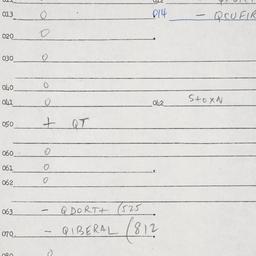 013 0 014 - QSUFIR
020 0
030 0
040 0
041 0 042 STOXN
050 + QT
060 0
061 0
062 0
063 - QDORT+ (525
070 - QIBERAL (812